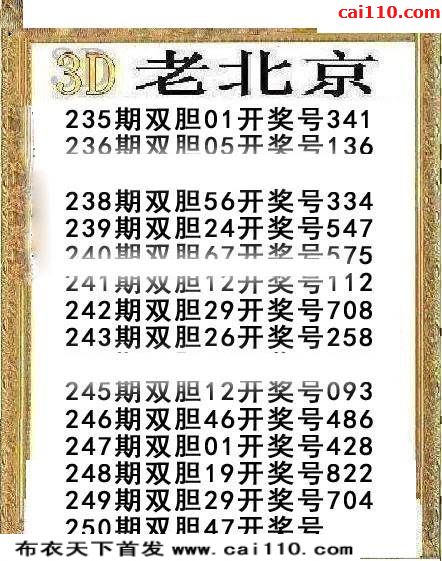 cai110.com
3D 老北京
235期双胆01开奖号341
236期双胆05开奖号136
238期双胆56开奖号334
239期双胆24开奖号547
240期双胆67开奖号575
241期双胆12开奖号112
242期双胆29开奖号708
243期双胆26开奖号258
245期双胆12开奖号093
246期双胆46开奖号486
247期双胆01开奖号428
248期双胆19开奖号822
249期双胆29开奖号704
250期双胆47开奖号
布衣天下首发 www.cai110.com